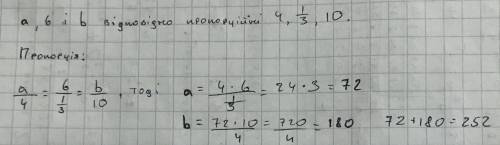 a, 6 і b відповідно пропорційні 4, 1/3, 10.
Пропорція:
a/4 = 6/(1/3) = b/10, тоді a = (4 · 6)/(1/3) = 24 · 3 = 72
b = (72 · 10)/4 = 720/4 = 180 72 + 180 = 252